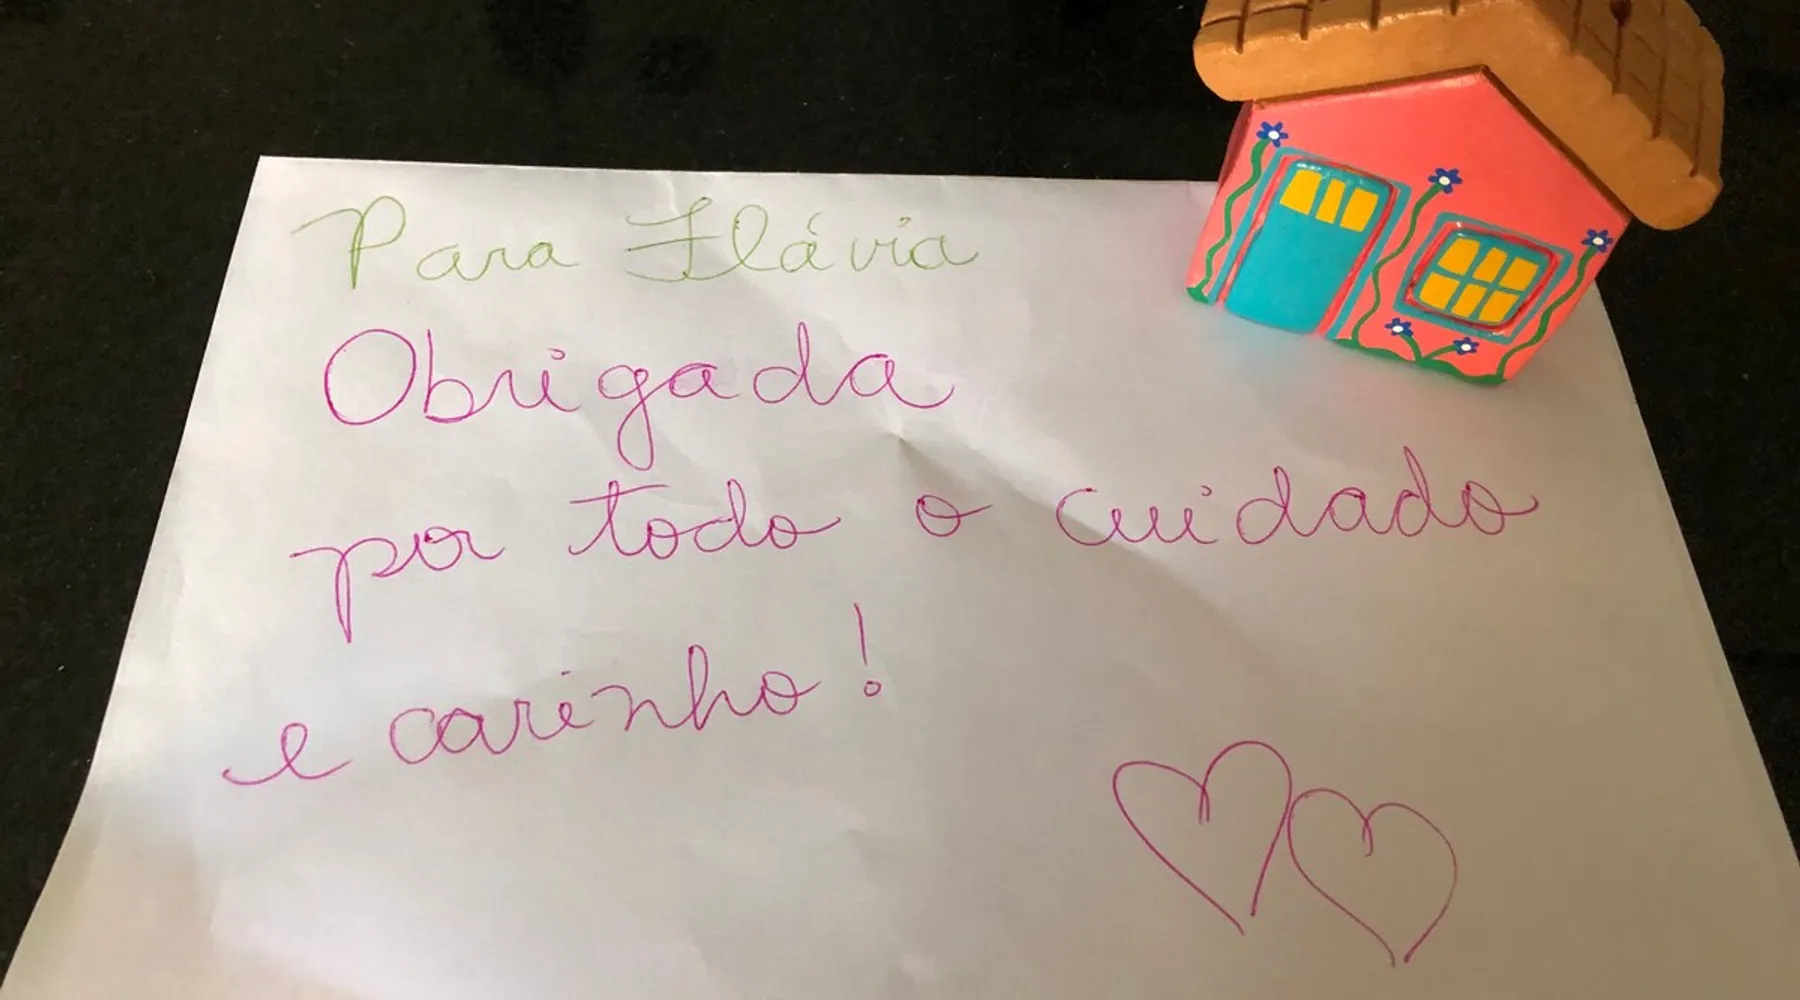 Para Flávia
Obrigada
por todo o cuidado
e carinho!